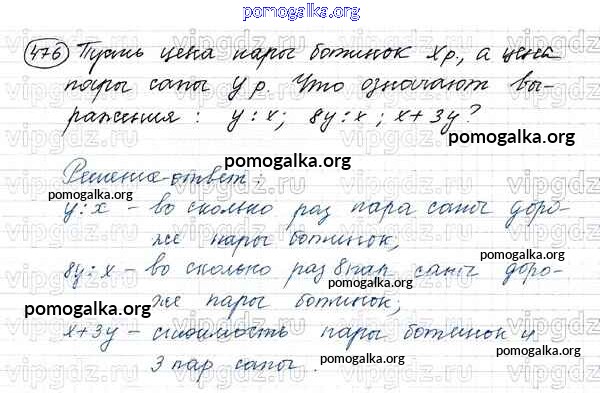 pomogalka.org
476 Пусть цена пары ботинок x р., а цена
пары сапог y р. Что означают вы-
ражения: y:x; 8y:x; x+3y?
pomogalka.org
pomogalka.org
Решение-ответ:
pomogalka.org
y:x - во сколько раз пара сапог доро-
же пары ботинок;
pomogalka.org
8y:x - во сколько раз 8 пар сапог доро-
же пары ботинок;
pomogalka.org
pomogalka.org
x+3y - стоимость пары ботинок и
3 пар сапог.
pomogalka.org
pomogalka.org
vipgdz.ru